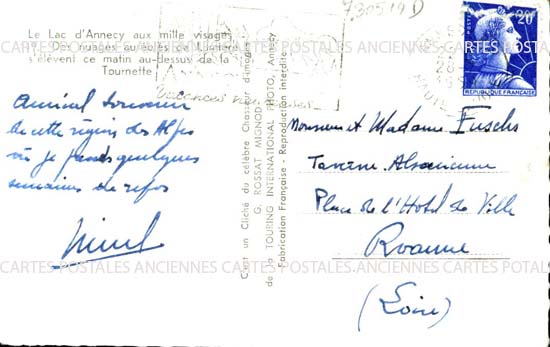 Le Lac d'Annecy aux mille visages
Des nuages auréolés de lumière
s'élèvent ce matin au-dessus de la
Tournette
730519 D
Vacances
20F
POSTES
REPUBLIQUE FRANÇAISE
Amical souvenir
de cette région des Alpes
où je passe quelques
semaines de repos
C'est un Cliché du célèbre Chasseur d'images
G. ROSSAT MIGNOD
de la TOURING INTERNATIONAL PHOTO, Annecy
Fabrication Française - Reproduction interdite
Monsieur et Madame Fuschs
Taverne Alsacienne
Place de l'Hôtel de Ville
Roanne
(Loire)
CARTES POSTALES ANCIENNES CARTES POSTALES ANCIENNES CARTES POSTALES